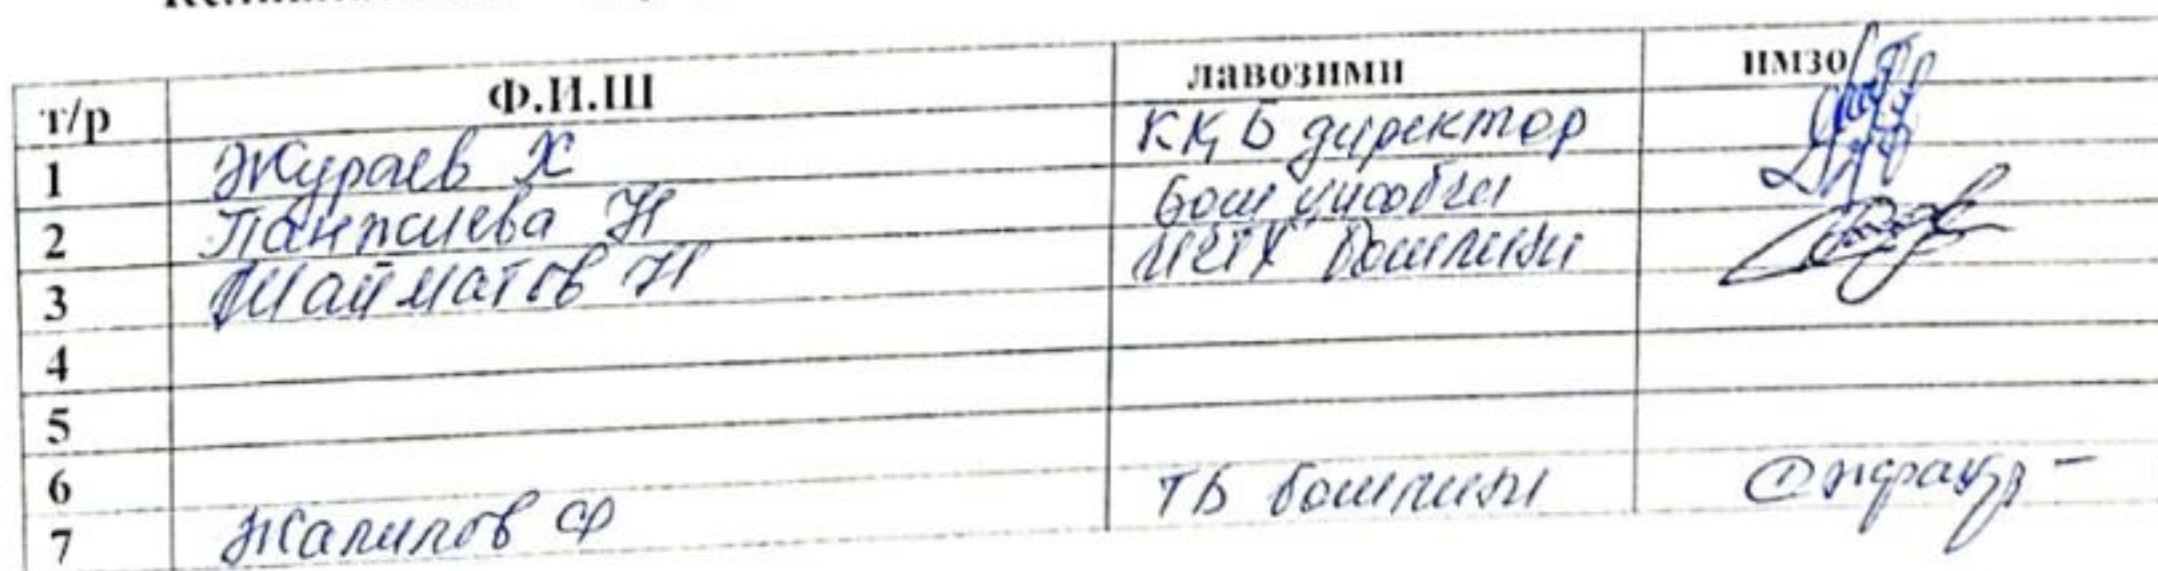 т/р Ф.И.Ш лавозими имзо
1 Жураев Х ККБ директор
2 Панжиева Н Бош ҳисобчи
3 Шайматов Н ИЧТХ бошлиғи
4
5
6
7 Жалилов Ф ТБ бошлиғи